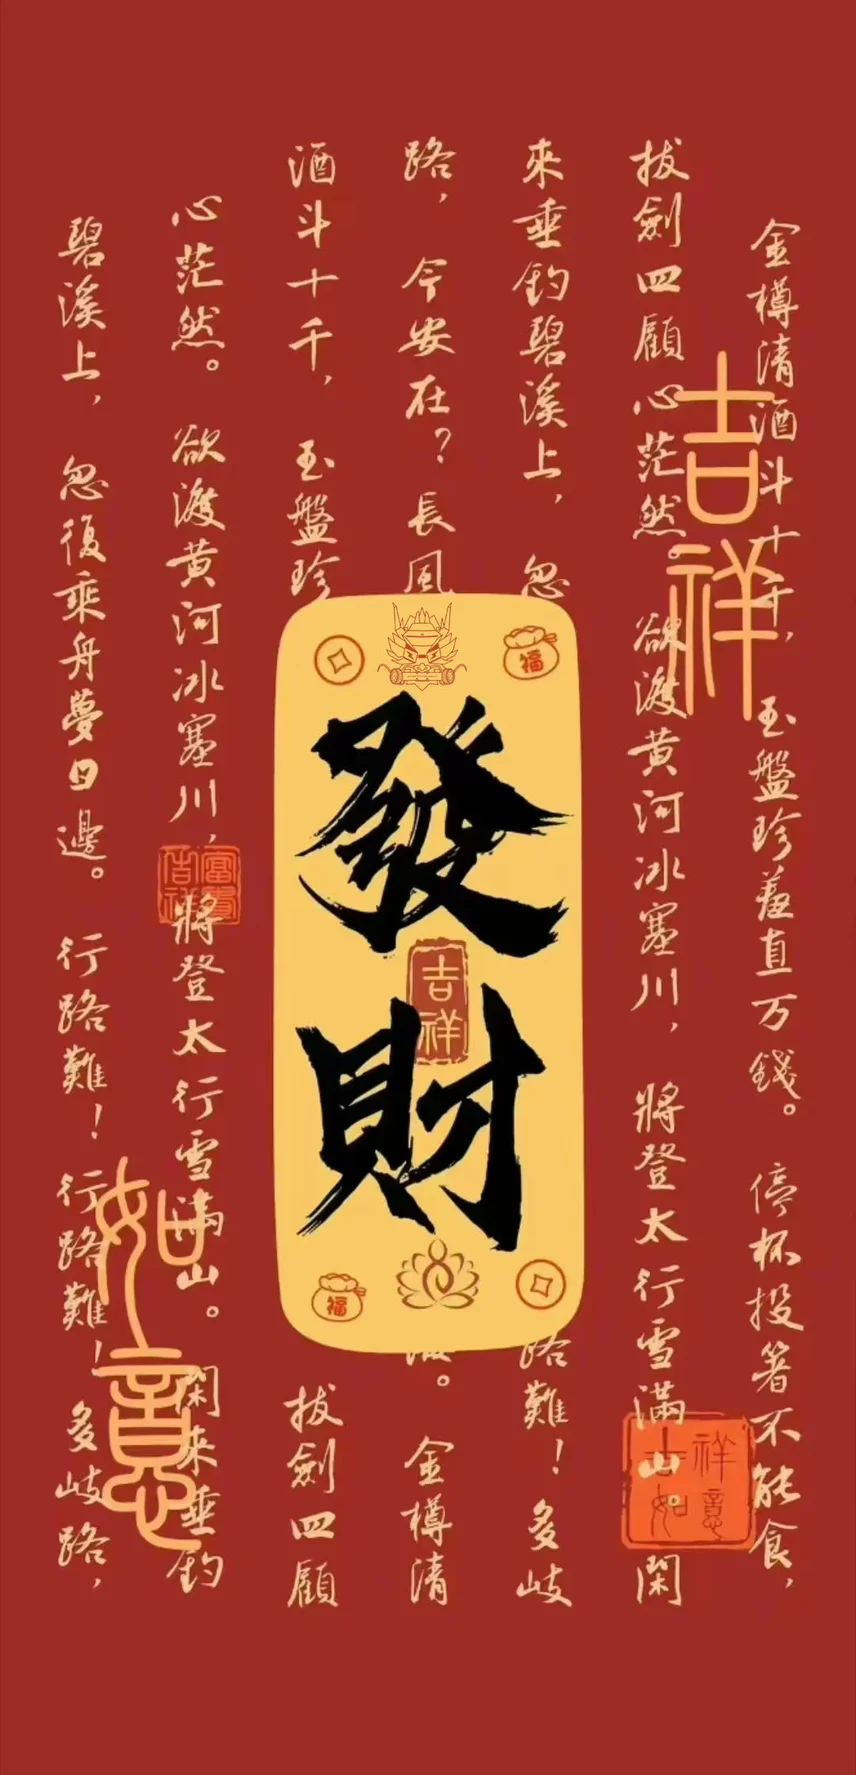 金樽清酒斗十千，玉盤珍羞直万錢。停杯投箸不能食，
拔劍四顧心茫然。欲渡黄河冰塞川，將登太行雪滿山。閑
來垂釣碧溪上，忽
路難！多岐
路，今安在？長風
。金樽清
酒斗十千，玉盤珍
拔劍四顧
心茫然。欲渡黄河冰塞川，將登太行雪滿山。閑來垂釣
碧溪上，忽復乘舟夢日邊。行路難！行路難！多岐路，
吉祥
如意
福
發財
吉祥
福
富貴吉祥
祥意吉如